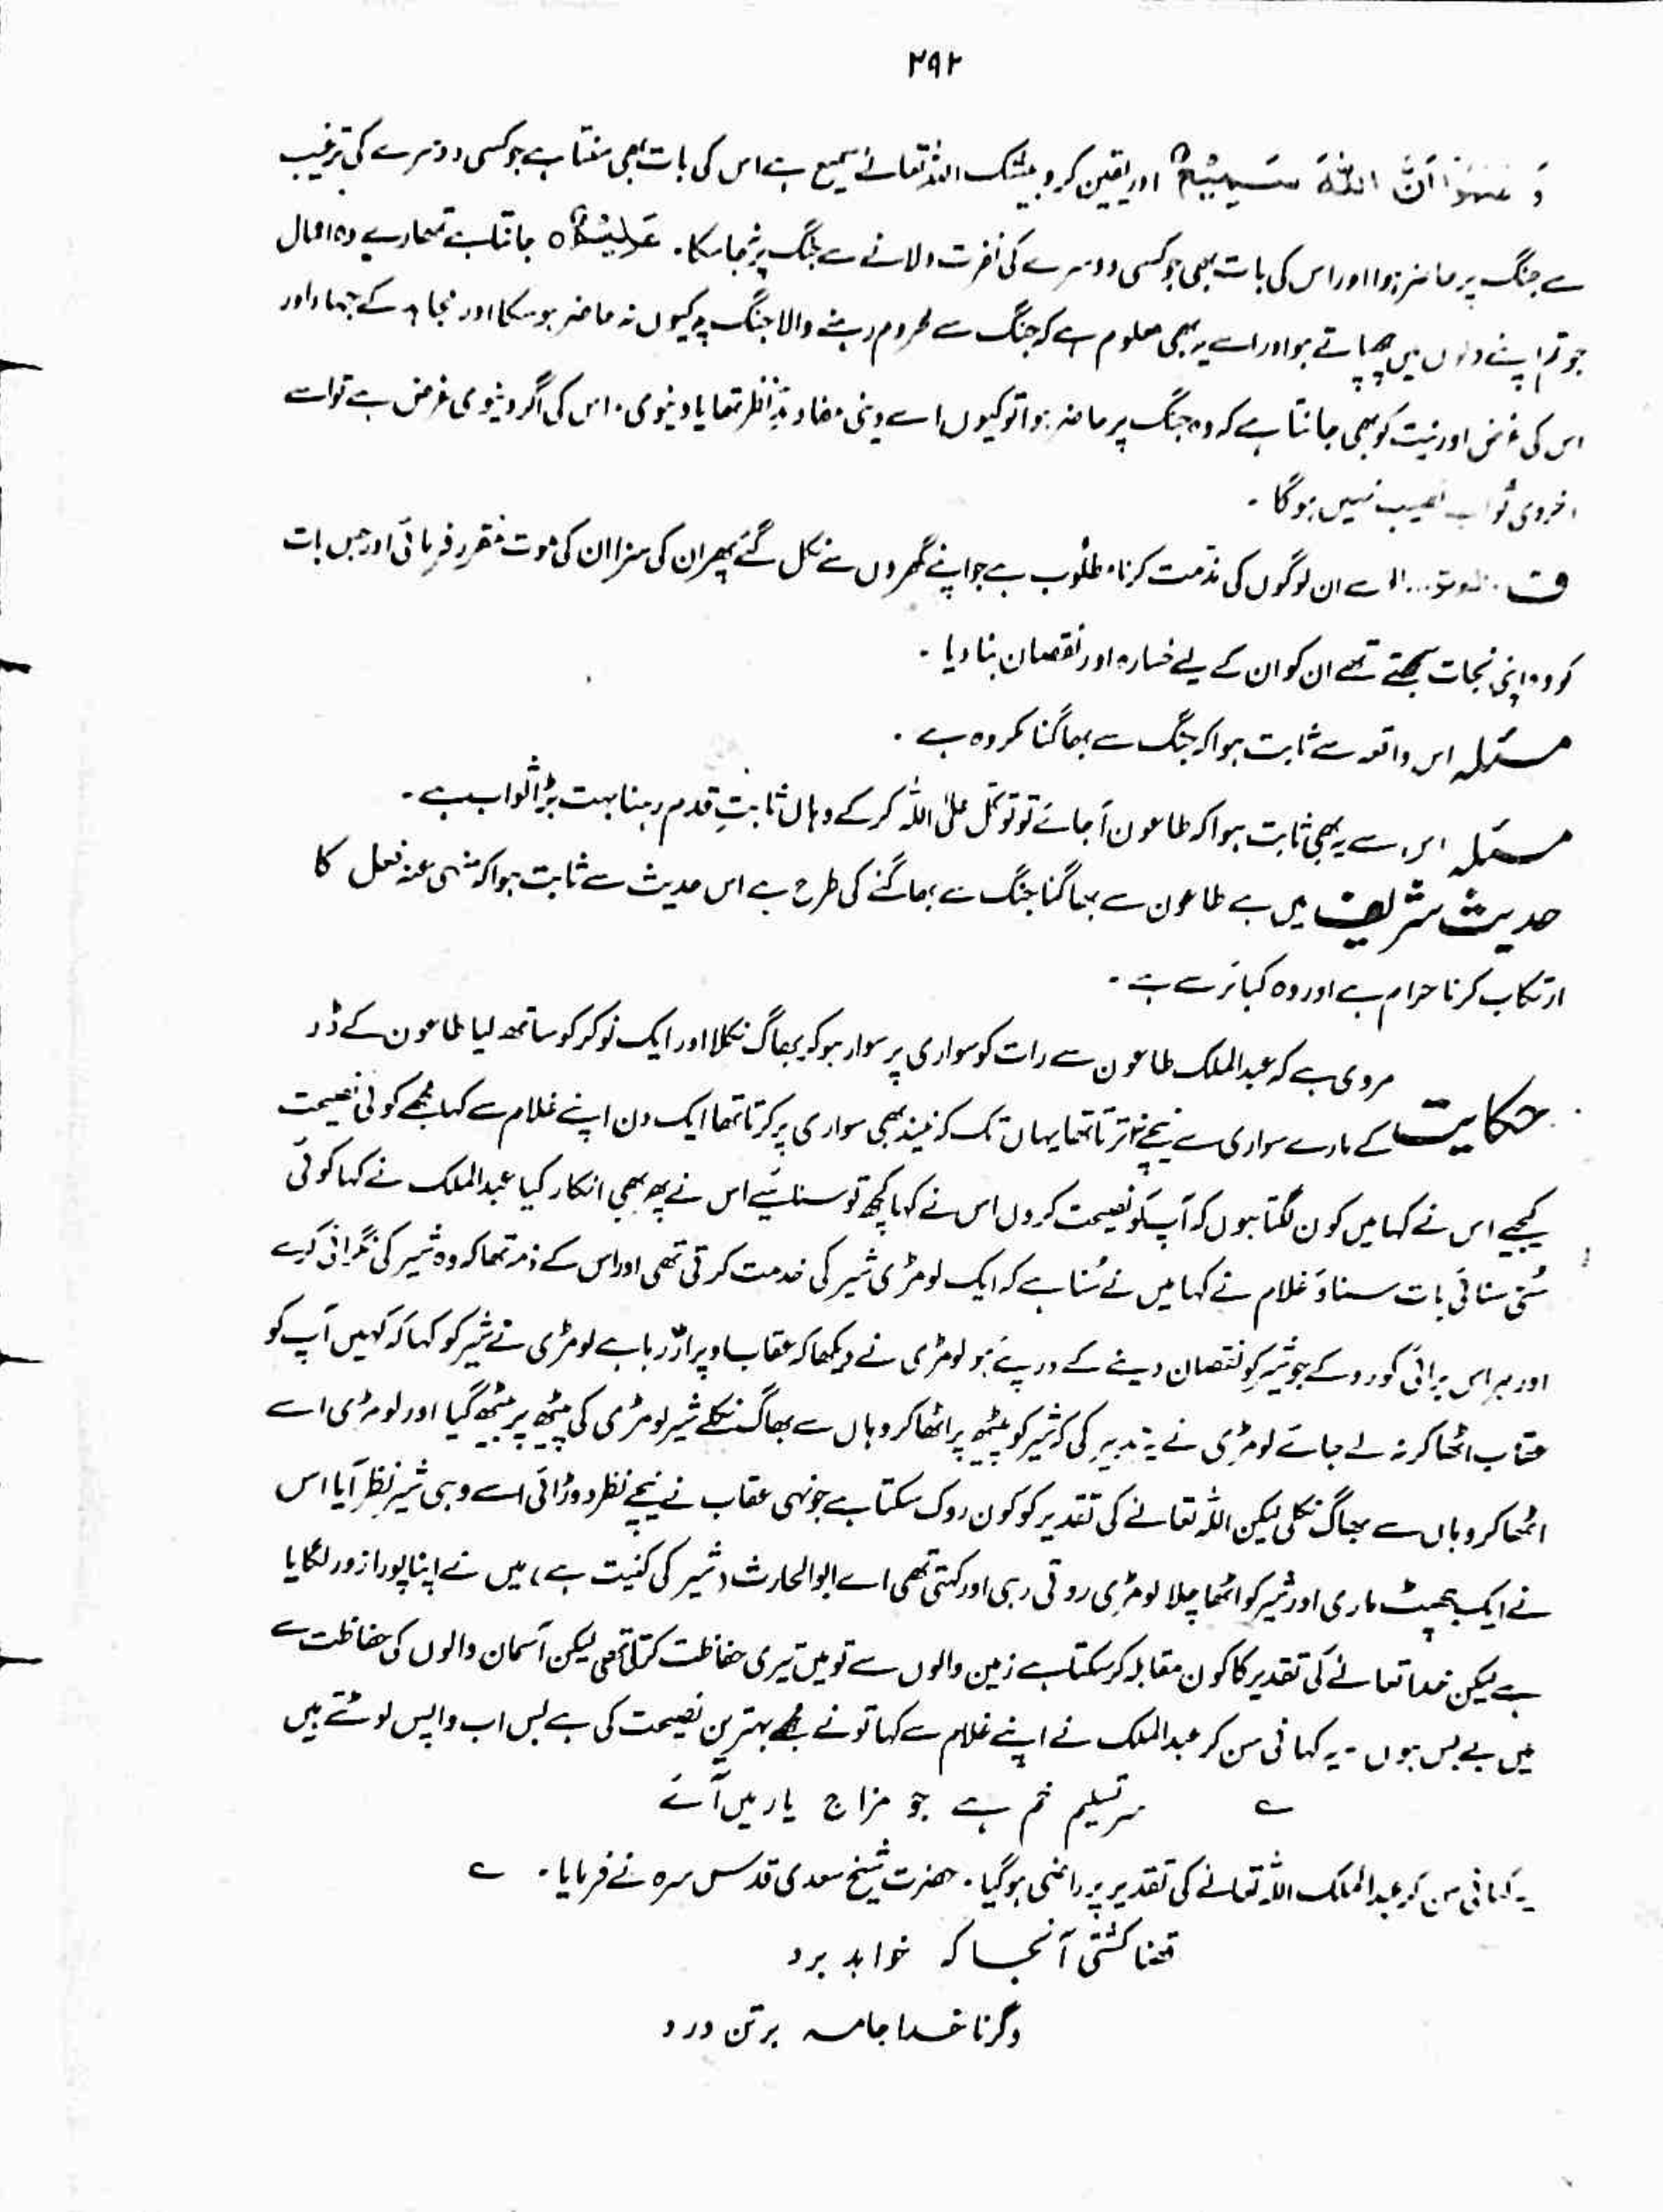 ۲۹۲
وَ اعْلَمُوْا اَنَّ اللّٰهَ سَمِیْعٌ اور یقین کرو بیشک اللہ تعالےٰ سمیع ہے اس کی بات بھی سنتا ہے جو کسی دوسرے کی ترغیب
سے جنگ پر حاضر ہوا اور اس کی بات بھی جو کسی دوسرے کی نفرت دلانے سے جنگ پر نہ جا سکا۔ عَلِیْمٌ ○ جانتا ہے تمھارے وہ
جو تم اپنے دلوں میں چھپاتے ہو اور اسے یہ بھی معلوم ہے کہ جنگ سے محروم رہنے والا جنگ پہ کیوں نہ حاضر ہو سکا اور مجاہد کے جہاد اور
اس کی غرض اور نیت کو بھی جانتا ہے کہ وہ جنگ پر حاضر ہوا تو کیوں اسے دینی مفاد مدِّ نظر تھا یا دنیوی۔ اس کی اگر دنیوی غرض ہے تو اسے
اخروی ثواب نصیب نہیں ہو گا۔
ف الخ سے ان لوگوں کی مذمت کرنا مطلوب ہے جو اپنے گھروں سے نکل گئے پھر ان کی سزا ان کی موت مقرر فرمائی اور جس بات
کو وہ اپنی نجات سمجھتے تھے ان کو ان کے لیے خسارہ اور نقصان بنا دیا۔
مسئلہ اس واقعہ سے ثابت ہوا کہ جنگ سے بھاگنا مکروہ ہے۔
مسئلہ اس سے یہ بھی ثابت ہوا کہ طاعون آ جائے تو توکّل علی اللہ کر کے وہاں ثابتِ قدم رہنا بہت بڑا ثواب ہے۔
حدیث شریف میں ہے طاعون سے بھاگنا جنگ سے بھاگنے کی طرح ہے اس حدیث سے ثابت ہوا کہ منہی عنہ فعل کا
ارتکاب کرنا حرام ہے اور وہ کبائر سے ہے۔
مروی ہے کہ عبدالملک طاعون سے رات کو سواری پر سوار ہو کر بھاگ نکلا اور ایک نوکر کو ساتھ لیا طاعون کے ڈر
حکایت کے مارے سواری سے نیچے نہ اترتا تھا یہاں تک کہ نیند بھی سواری پر کرتا تھا ایک دن اپنے غلام سے کہا مجھے کوئی نصیحت
کیجیے اس نے کہا میں کون لگتا ہوں کہ آپ کو نصیحت کروں اس نے کہا کچھ تو سنائیے اس نے پھر بھی انکار کیا عبدالملک نے کہا کوئی
سُنی سنائی بات سناؤ غلام نے کہا میں نے سُنا ہے کہ ایک لومڑی شیر کی خدمت کرتی تھی اور اس کے ذمہ تھا کہ وہ شیر کی نگرانی کرے
اور ہر اس برائی کو روکے جو شیر کو نقصان دینے کے درپے ہو لومڑی نے دیکھا کہ عقاب اوپر اڑ رہا ہے لومڑی نے شیر کو کہا کہ کہیں آپ کو
عقاب اٹھا کر نہ لے جائے لومڑی نے یہ تدبیر کی کہ شیر کو پیٹھ پر اٹھا کر وہاں سے بھاگ نکلے شیر لومڑی کی پیٹھ پر بیٹھ گیا اور لومڑی اسے
اٹھا کر وہاں سے بھاگ نکلی لیکن اللہ تعالےٰ کی تقدیر کو کون روک سکتا ہے جونہی عقاب نے نیچے نظر دوڑائی اسے وہی شیر نظر آیا اس
نے ایک جھپٹ ماری اور شیر کو اٹھا چلا لومڑی روتی رہی اور کہتی تھی اے ابوالحارث (شیر کی کنیت ہے) میں نے اپنا پورا زور لگایا
ہے لیکن خدا تعالےٰ کی تقدیر کا کون مقابلہ کر سکتا ہے زمین والوں سے تو میں تیری حفاظت کرتی تھی لیکن آسمان والوں کی حفاظت سے
میں بے بس ہوں۔ یہ کہانی سن کر عبدالملک نے اپنے غلام سے کہا تو نے مجھے بہترین نصیحت کی ہے بس اب واپس لوٹتے ہیں
ے سرِ تسلیم خم ہے جو مزاجِ یار میں آئے
یہ کہانی سن کر عبدالملک اللہ تعالےٰ کی تقدیر پر راضی ہو گیا۔ حضرت شیخ سعدی قدس سرہ نے فرمایا۔ ے
قضا کشتی آنجا کہ خواہد برد
وگر ناخدا جامہ بر تن درد